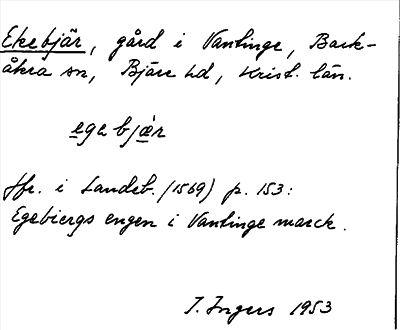 Ekebjär, gård i Vantinge, Bark-
åkra sn, Bjäre hd, Krist. län.
egebjær
Jfr. i Landeb. (1569) p. 153:
Egebiergs engen i Vantinge marck.
I. Ingers 1953